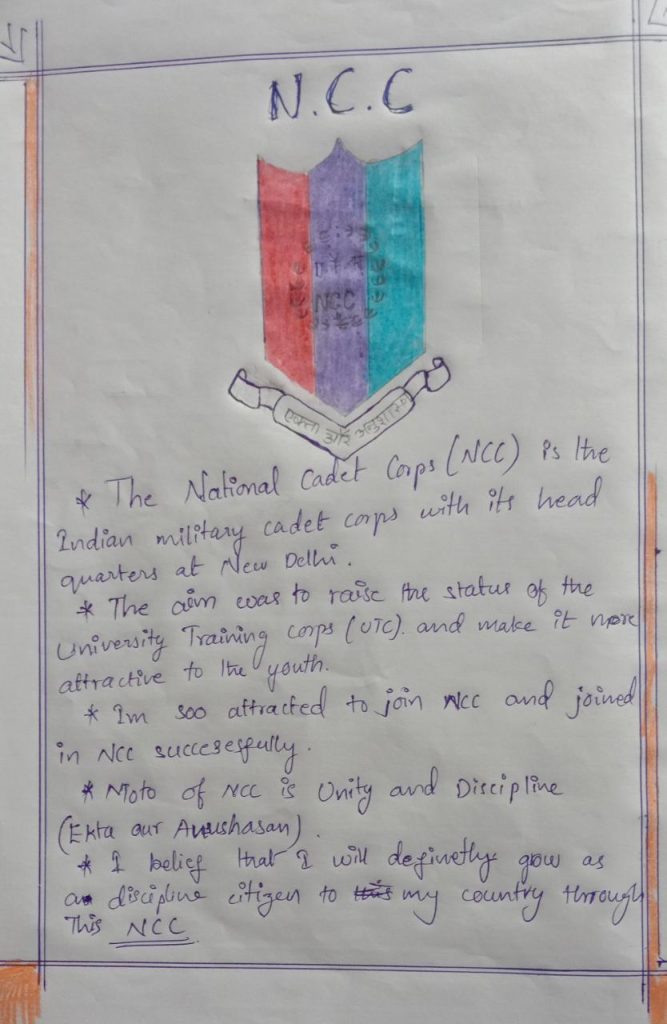 N.C.C
NCC
एकता और अनुशासन
* The National Cadet Corps (NCC) is the
Indian military cadet corps with its head
quarters at New Delhi.
* The aim was to raise the status of the
University Training corps (UTC). and make it more
attractive to the youth.
* Im soo attracted to join NCC and joined
in NCC succesesfully.
* Moto of NCC is Unity and Discipline
(Ekta aur Anushasan).
* I belief that I will definetly grow as
a discipline citizen to my country through
This NCC